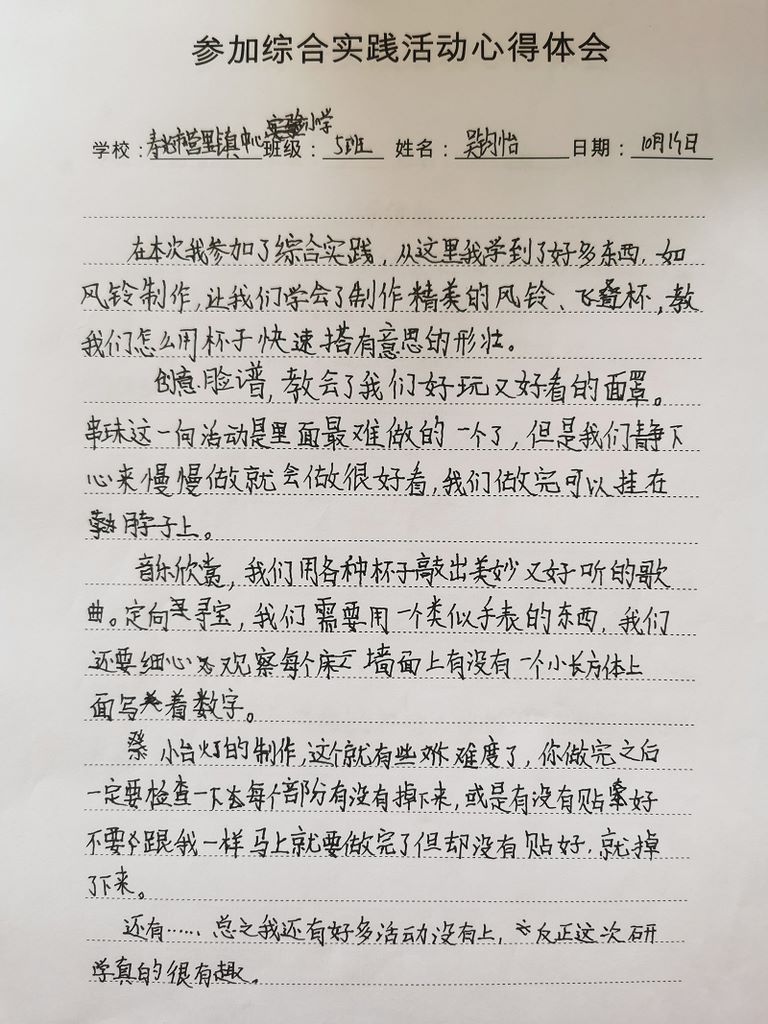 参加综合实践活动心得体会
学校：寿光市营里镇中心实验小学 班级：5班 姓名：吴钧怡 日期：10月19日
在本次我参加了综合实践，从这里我学到了好多东西，如
风铃制作，让我们学会了制作精美的风铃、飞叠杯，教
我们怎么用杯子快速搭有意思的形壮。
创意脸谱，教会了我们好玩又好看的面罩。
串珠这一向活动是里面最难做的一个了，但是我们静下
心来慢慢做就会做很好看，我们做完可以挂在
脖子上。
音乐欣赏，我们用各种杯子敲出美妙又好听的歌
曲。定向寻宝，我们需要用一个类似手表的东西，我们
还要细心观察每个墙面上有没有一个小长方体上
面写着数字。
小台灯的制作，这个就有些难度了，你做完之后
一定要检查一下每个部分有没有掉下来，或是有没有贴好
不要跟我一样马上就要做完了但却没有贴好，就掉
了下来。
还有……总之我还有好多活动没有上，反正这次研
学真的很有趣。